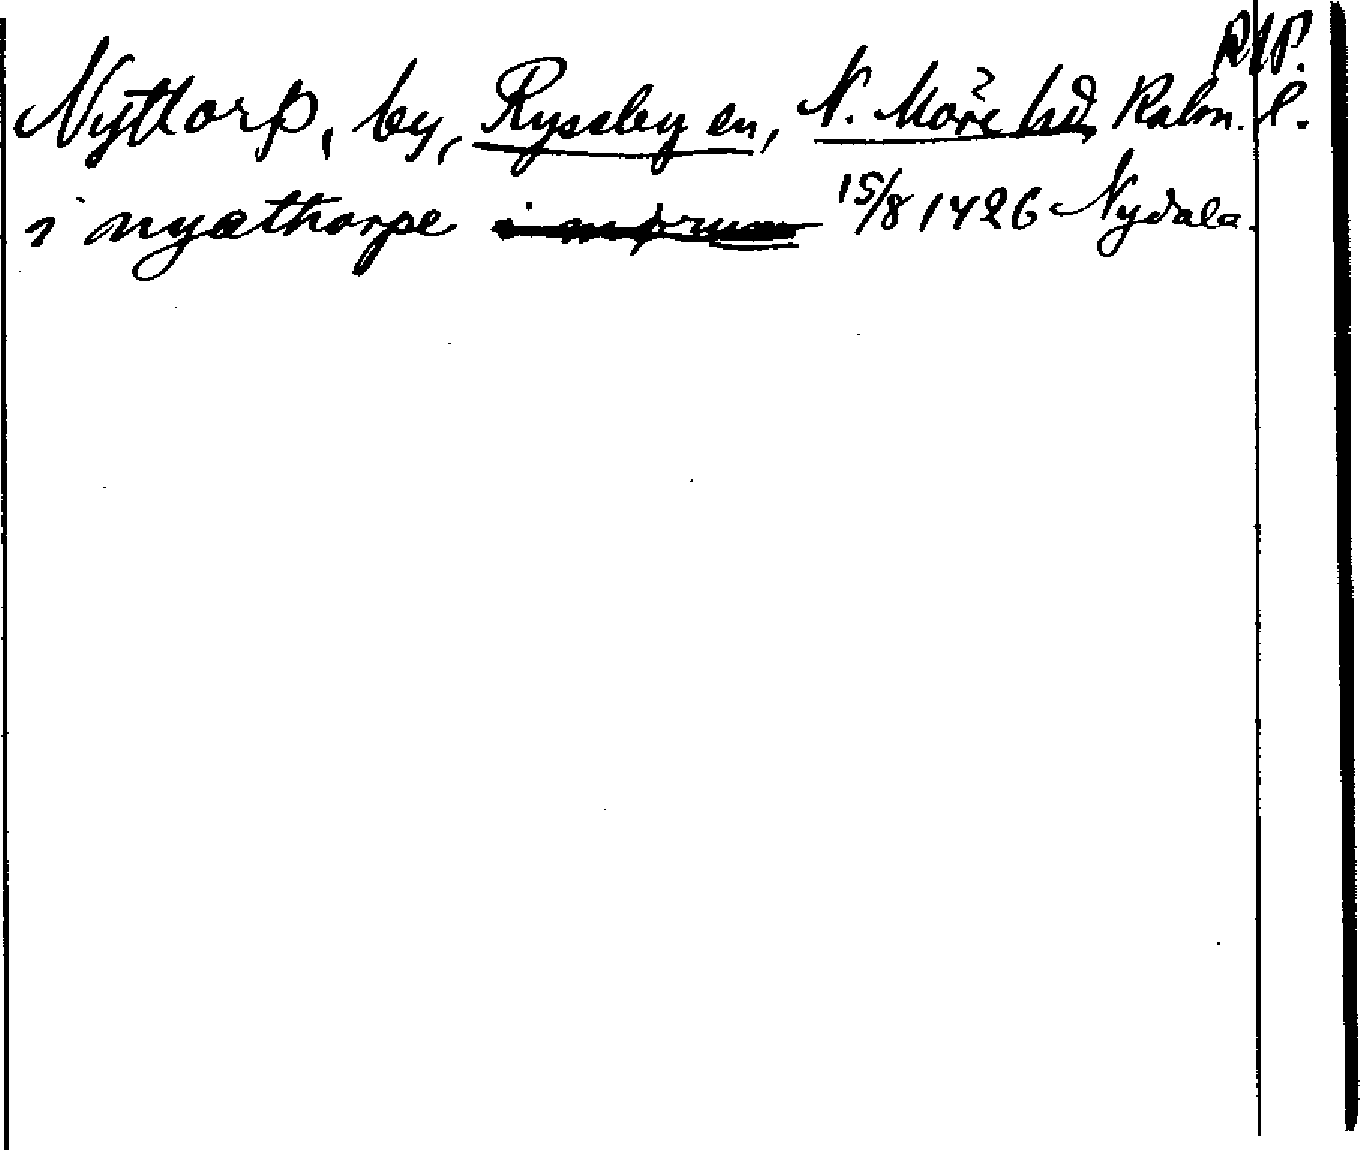 RAP.
Nyttorp, by, Ryssby sn, N. Möre hd, Kalm. l.
i nyæthorpe 15/8 1426 Nydala.